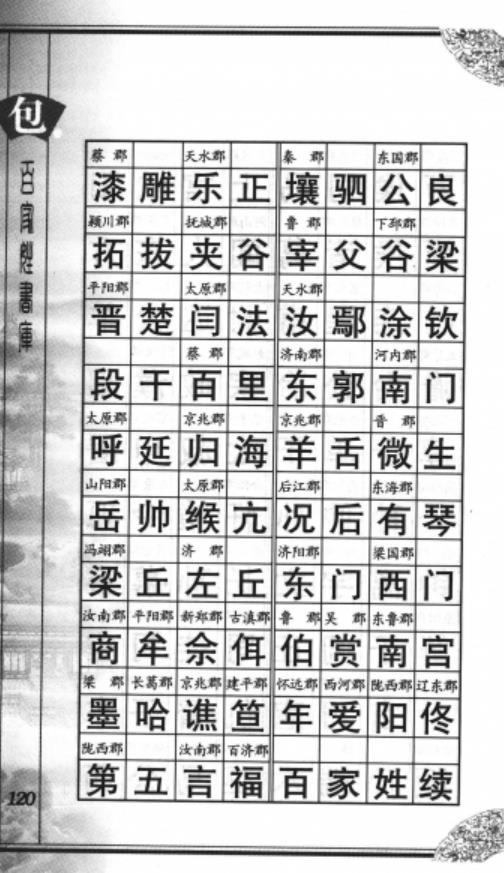 包
百家姓書庫
蔡郡 天水郡 秦郡 东国郡
漆雕乐正壤驷公良
颍川郡 抚城郡 鲁郡 下邳郡
拓拔夹谷宰父谷梁
平阳郡 太原郡 天水郡
晋楚闫法汝鄢涂钦
蔡郡 济南郡 河内郡
段干百里东郭南门
太原郡 京兆郡 京兆郡 晋郡
呼延归海羊舌微生
山阳郡 太原郡 后江郡 东海郡
岳帅缑亢况后有琴
冯翊郡 济郡 济阳郡 梁国郡
梁丘左丘东门西门
汝南郡 平阳郡 新郑郡 古滇郡 鲁郡 吴郡 东鲁郡
商牟佘佴伯赏南宫
梁郡 长葛郡 京兆郡 建平郡 怀远郡 西河郡 陇西郡 辽东郡
墨哈谯笪年爱阳佟
陇西郡 汝南郡 百济郡
第五言福百家姓续
120